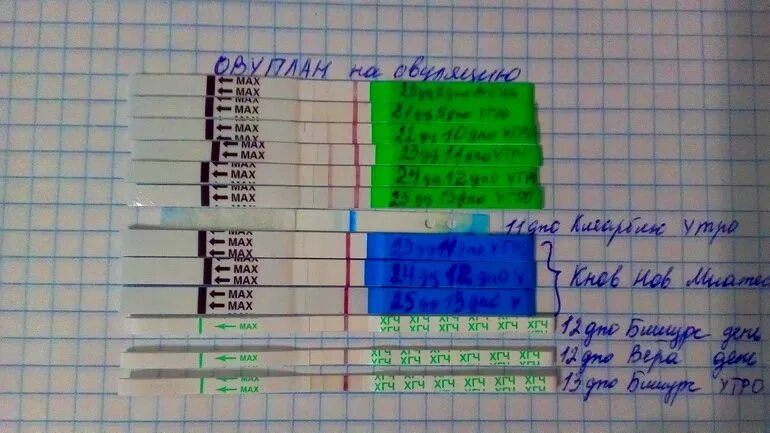 ОВУПЛАН на овуляцию
MAX
MAX 21 дц 9 дпо утро
MAX 22 дц 10 дпо УТРО
MAX 23 дц 11 дпо УТРО
MAX 24 дц 12 дпо УТРО
MAX 25 дц 13 дпо УТРО
11 дпо Клеарблю утро
MAX
MAX 23 дц 11 дпо УТРО
MAX 24 дц 12 дпо У
MAX
MAX 25 дц 13 дпо У
Кнов Нов
MAX ХГЧ ХГЧ ХГЧ ХГЧ ХГЧ ХГЧ 12 дпо день
MAX ХГЧ ХГЧ ХГЧ ХГЧ ХГЧ ХГЧ 12 дпо Вера день
MAX ХГЧ ХГЧ ХГЧ ХГЧ ХГЧ ХГЧ 13 дпо УТРО